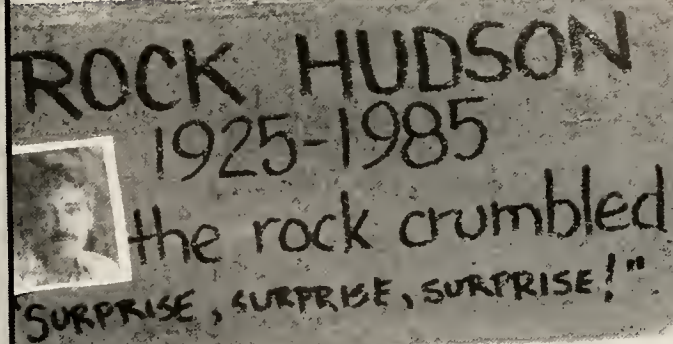 ROCK HUDSON
1925-1985
the rock crumbled
"SURPRISE, SURPRISE, SURPRISE!"